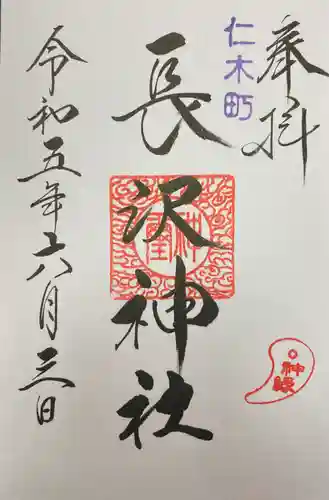 奉拝
仁木町
長沢神社
令和五年六月三日